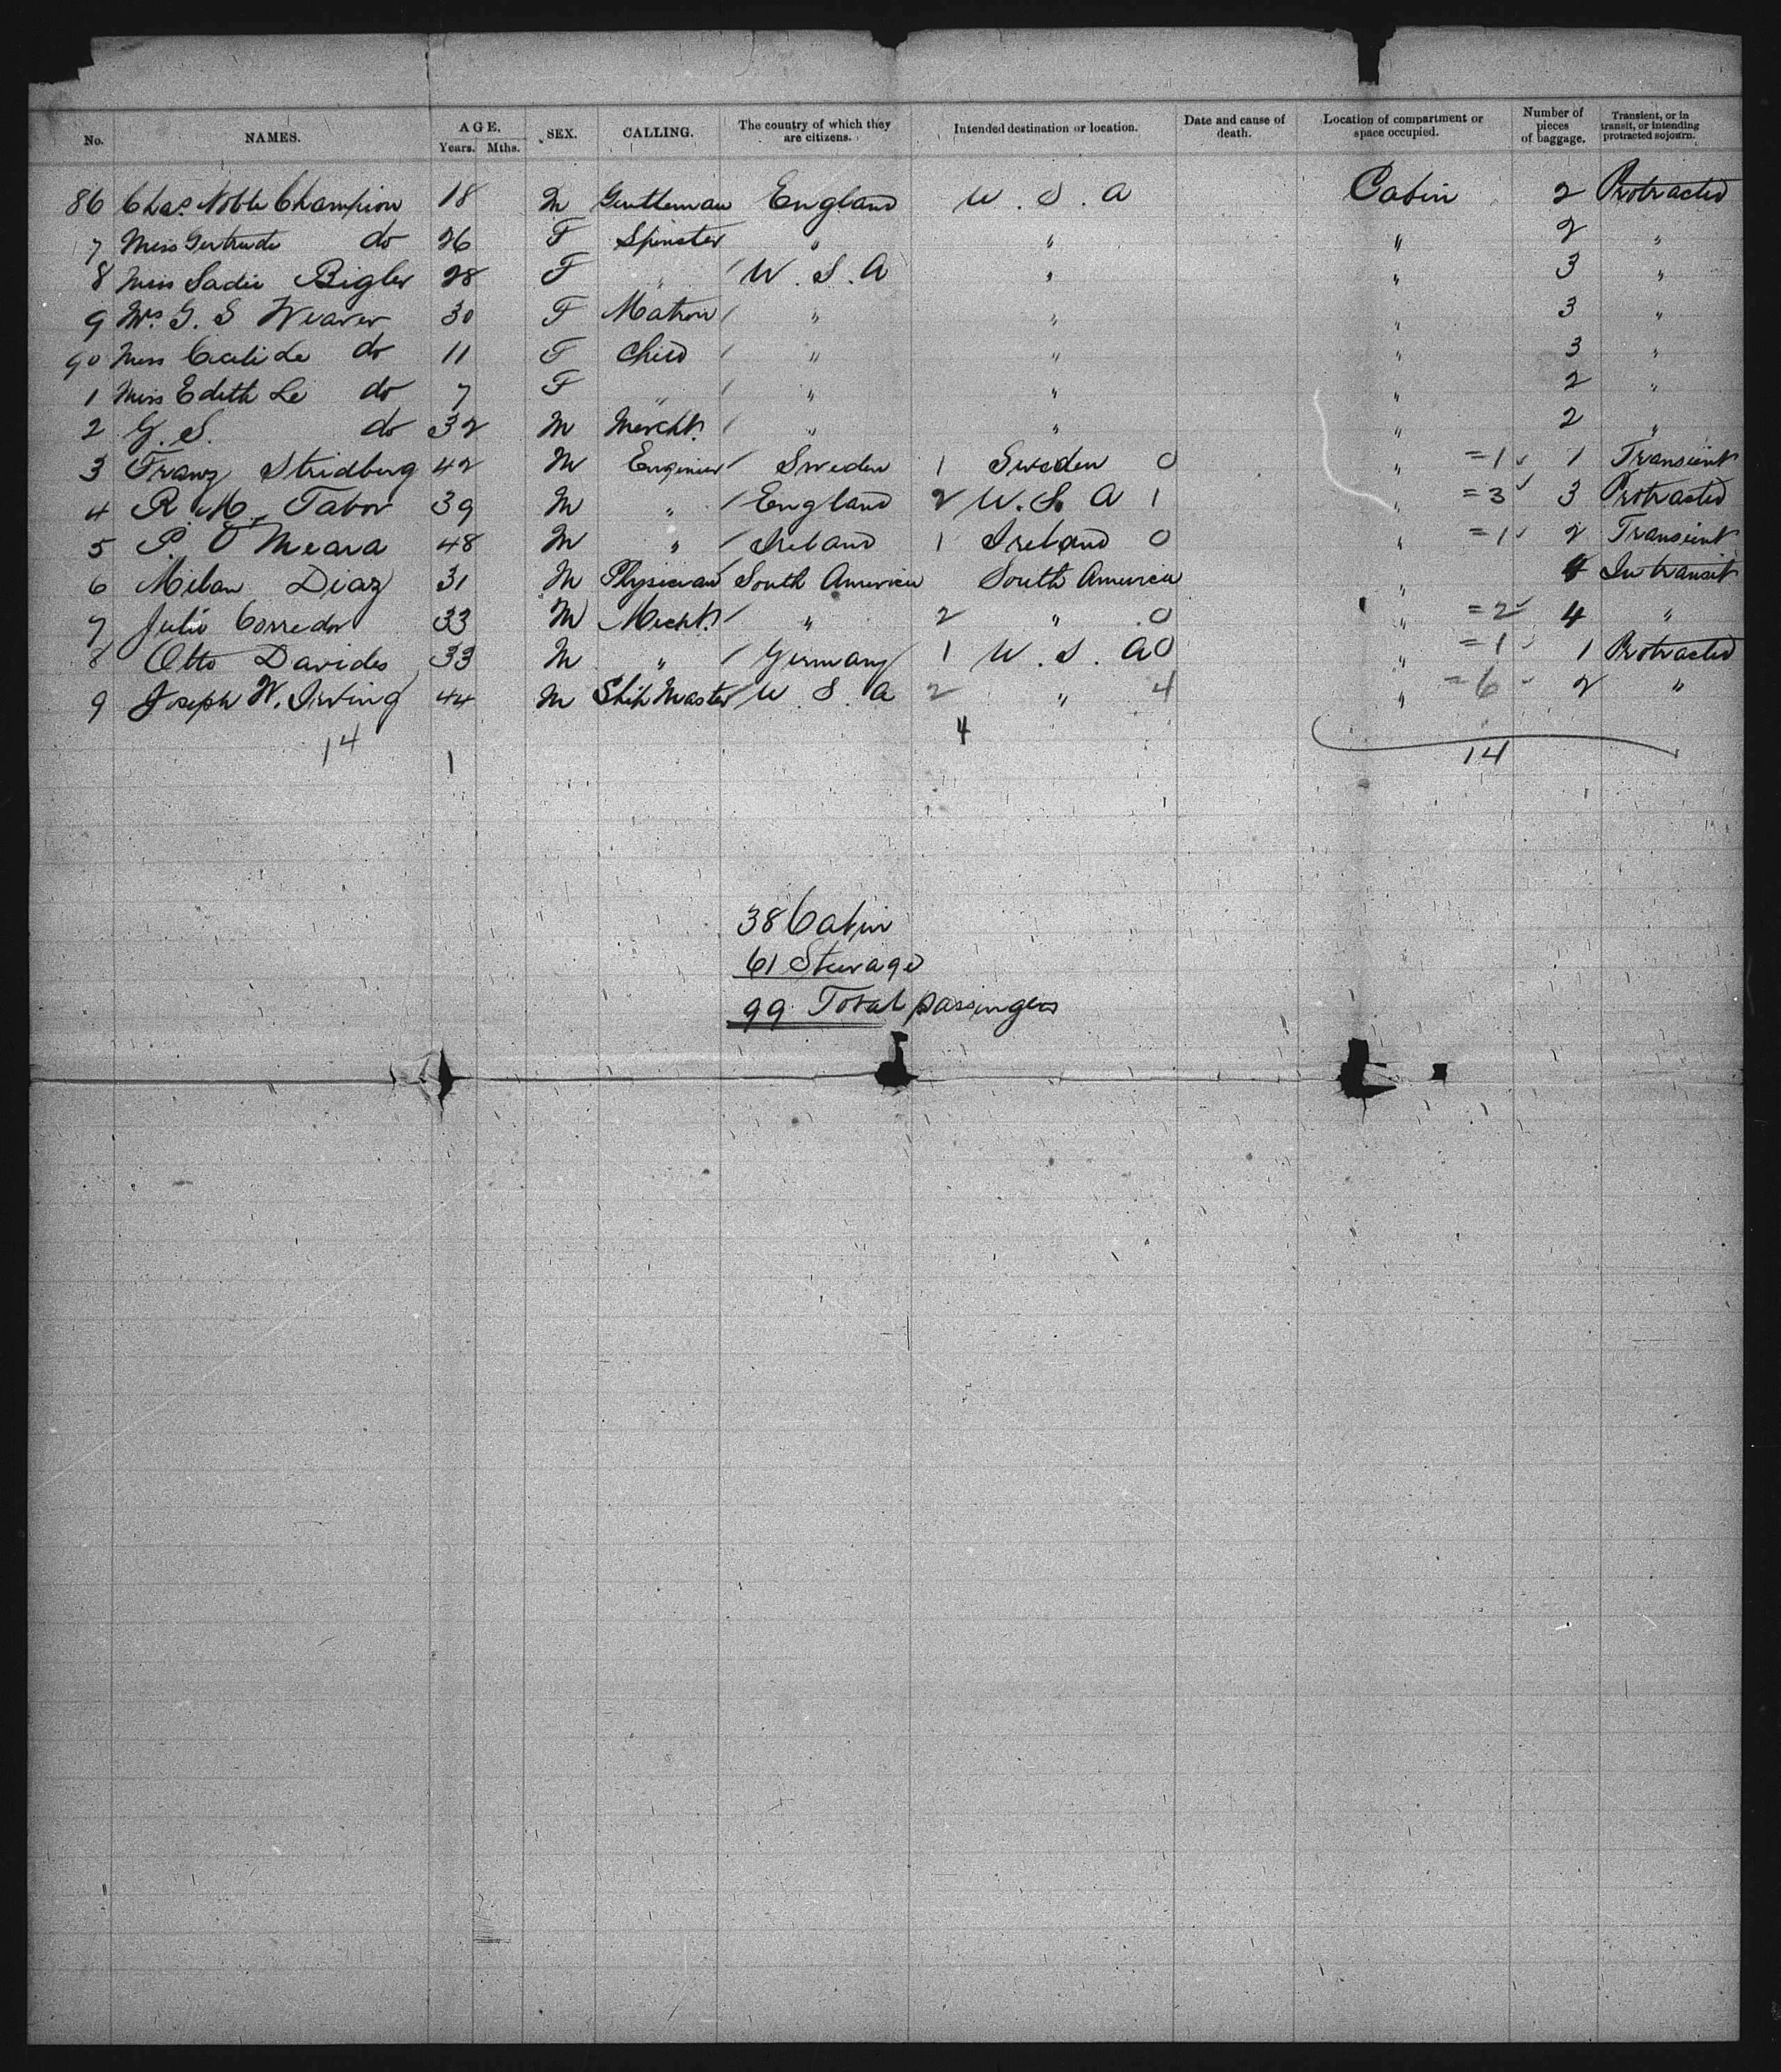 No. NAMES. AGE. Years. Mths. SEX. CALLING. The country of which they are citizens. Intended destination or location. Date and cause of death. Location of compartment or space occupied. Number of pieces of baggage. Transient, or in transit, or intending protracted sojourn.
86 Chas. Noble Champion 18 M Gentleman England U. S. A Cabin 2 Protracted
7 Miss Gertrude do 26 F Spinster " " " 2 "
8 Miss Sadie Bigler 28 F " / U. S. A " " 3 "
9 Mrs. G. S Weaver 30 F Matron / " " " 3 "
90 Miss do 11 F Child / " " " 3 "
1 Miss Edith Le do 7 F " / " " " 2 "
2 G. S. do 32 M Mercht. / " " " 2 "
3 Franz Stridberg 42 M Engineer / Sweden 1 Sweden 0 " =1 ✓ 1 Transient
4 R. M. Tabor 39 M " / England 2 U. S. A 1 " =3 ✓ 3 Protracted
5 P. O'Meara 48 M " / Ireland 1 Ireland 0 " =1 ✓ 2 Transient
6 Milan Diaz 31 M Physician South America South America " 4 In transit
7 Julio Corredor 33 M Mercht. / " 2 " 0 " =2 ✓ 4 "
8 Otto Davides 33 M " / Germany 1 U. S. A 0 " =1 ✓ 1 Protracted
9 Joseph W. Irving 44 M Ship Master / U. S. A 2 " 4 " =6 ✓ 2 "
14 1 4 14
38 Cabin
61 Steerage
99 Total passengers